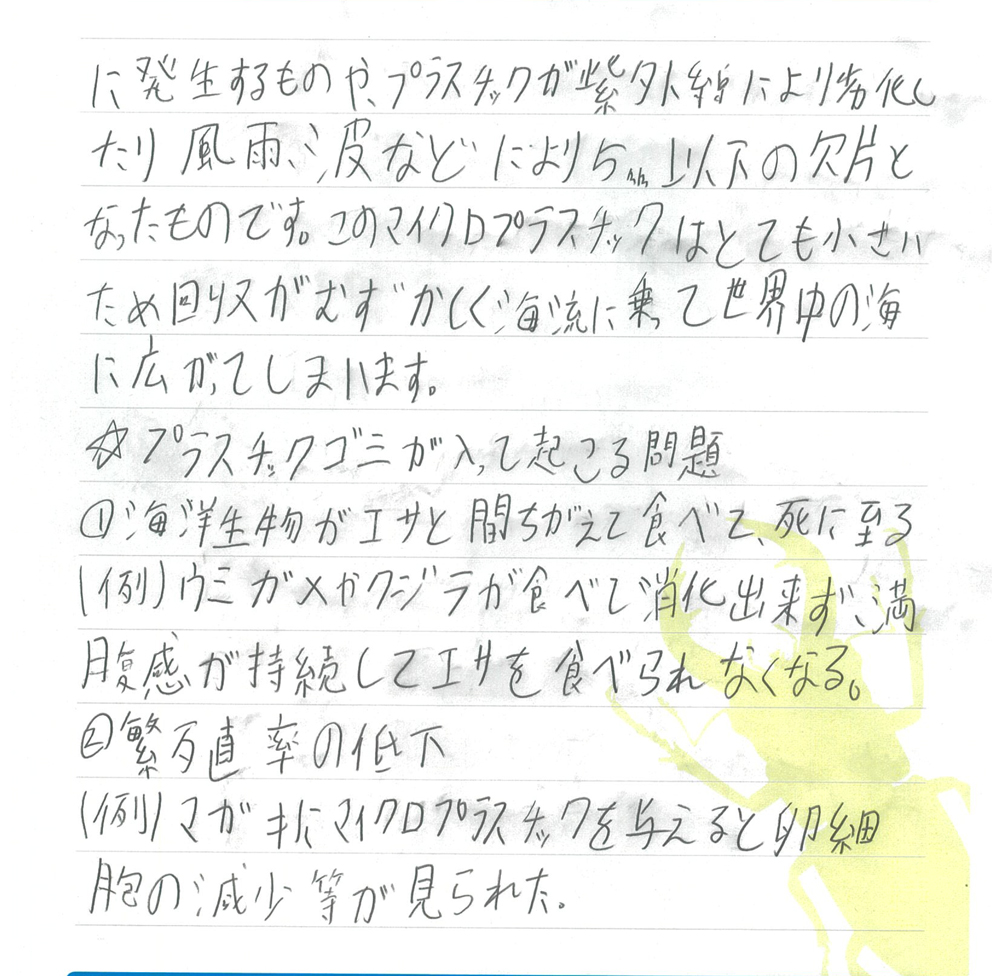 に発生するものや、プラスチックが紫外線により劣化し
たり風雨、波などにより5mm以下の欠片と
なったものです。このマイクロプラスチックはとても小さい
ため回収がむずかしく海流に乗って世界中の海
に広がってしまいます。
☆プラスチックゴミが入って起こる問題
①海洋生物がエサと間ちがえて食べて、死に至る
(例)ウミガメやクジラが食べて消化出来ず、満
腹感が持続してエサを食べられなくなる。
②繁殖率の低下
(例)マガキにマイクロプラスチックを与えると卵細
胞の減少等が見られた。